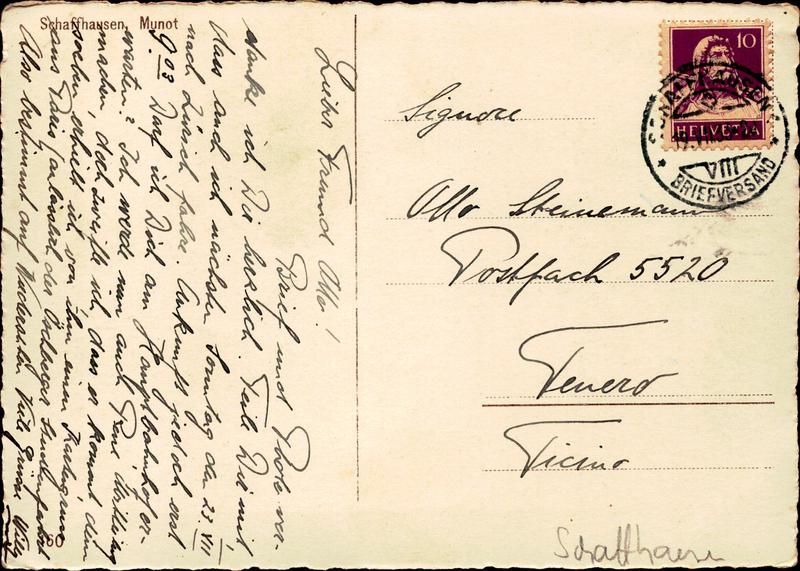 Schaffhausen, Munot
Lieber Freund Otto!
Brief und Photo ver-
danke ich Dir herzlich. Teile Dir mit
dass auch ich nächsten Sonntag den 23. VII
nach Zürich fahre. Ankunft jedoch erst
9.03 Darf ich Dich am Hauptbahnhof er-
warten? Ich werde nun auch René
machen, doch zweifle ich dass es kommt denn
soeben erhielt ich von ihm einen Kartengruss
aus Paris der
Also bestimmt auf Wiedersehen Viele Grüsse Willy
60
10
HELVETIA
SCHAFFHAUSEN
VIII
BRIEFVERSAND
Signore
Otto Steinemann
Postfach 5520
Tenero
Ticino
Schaffhausen